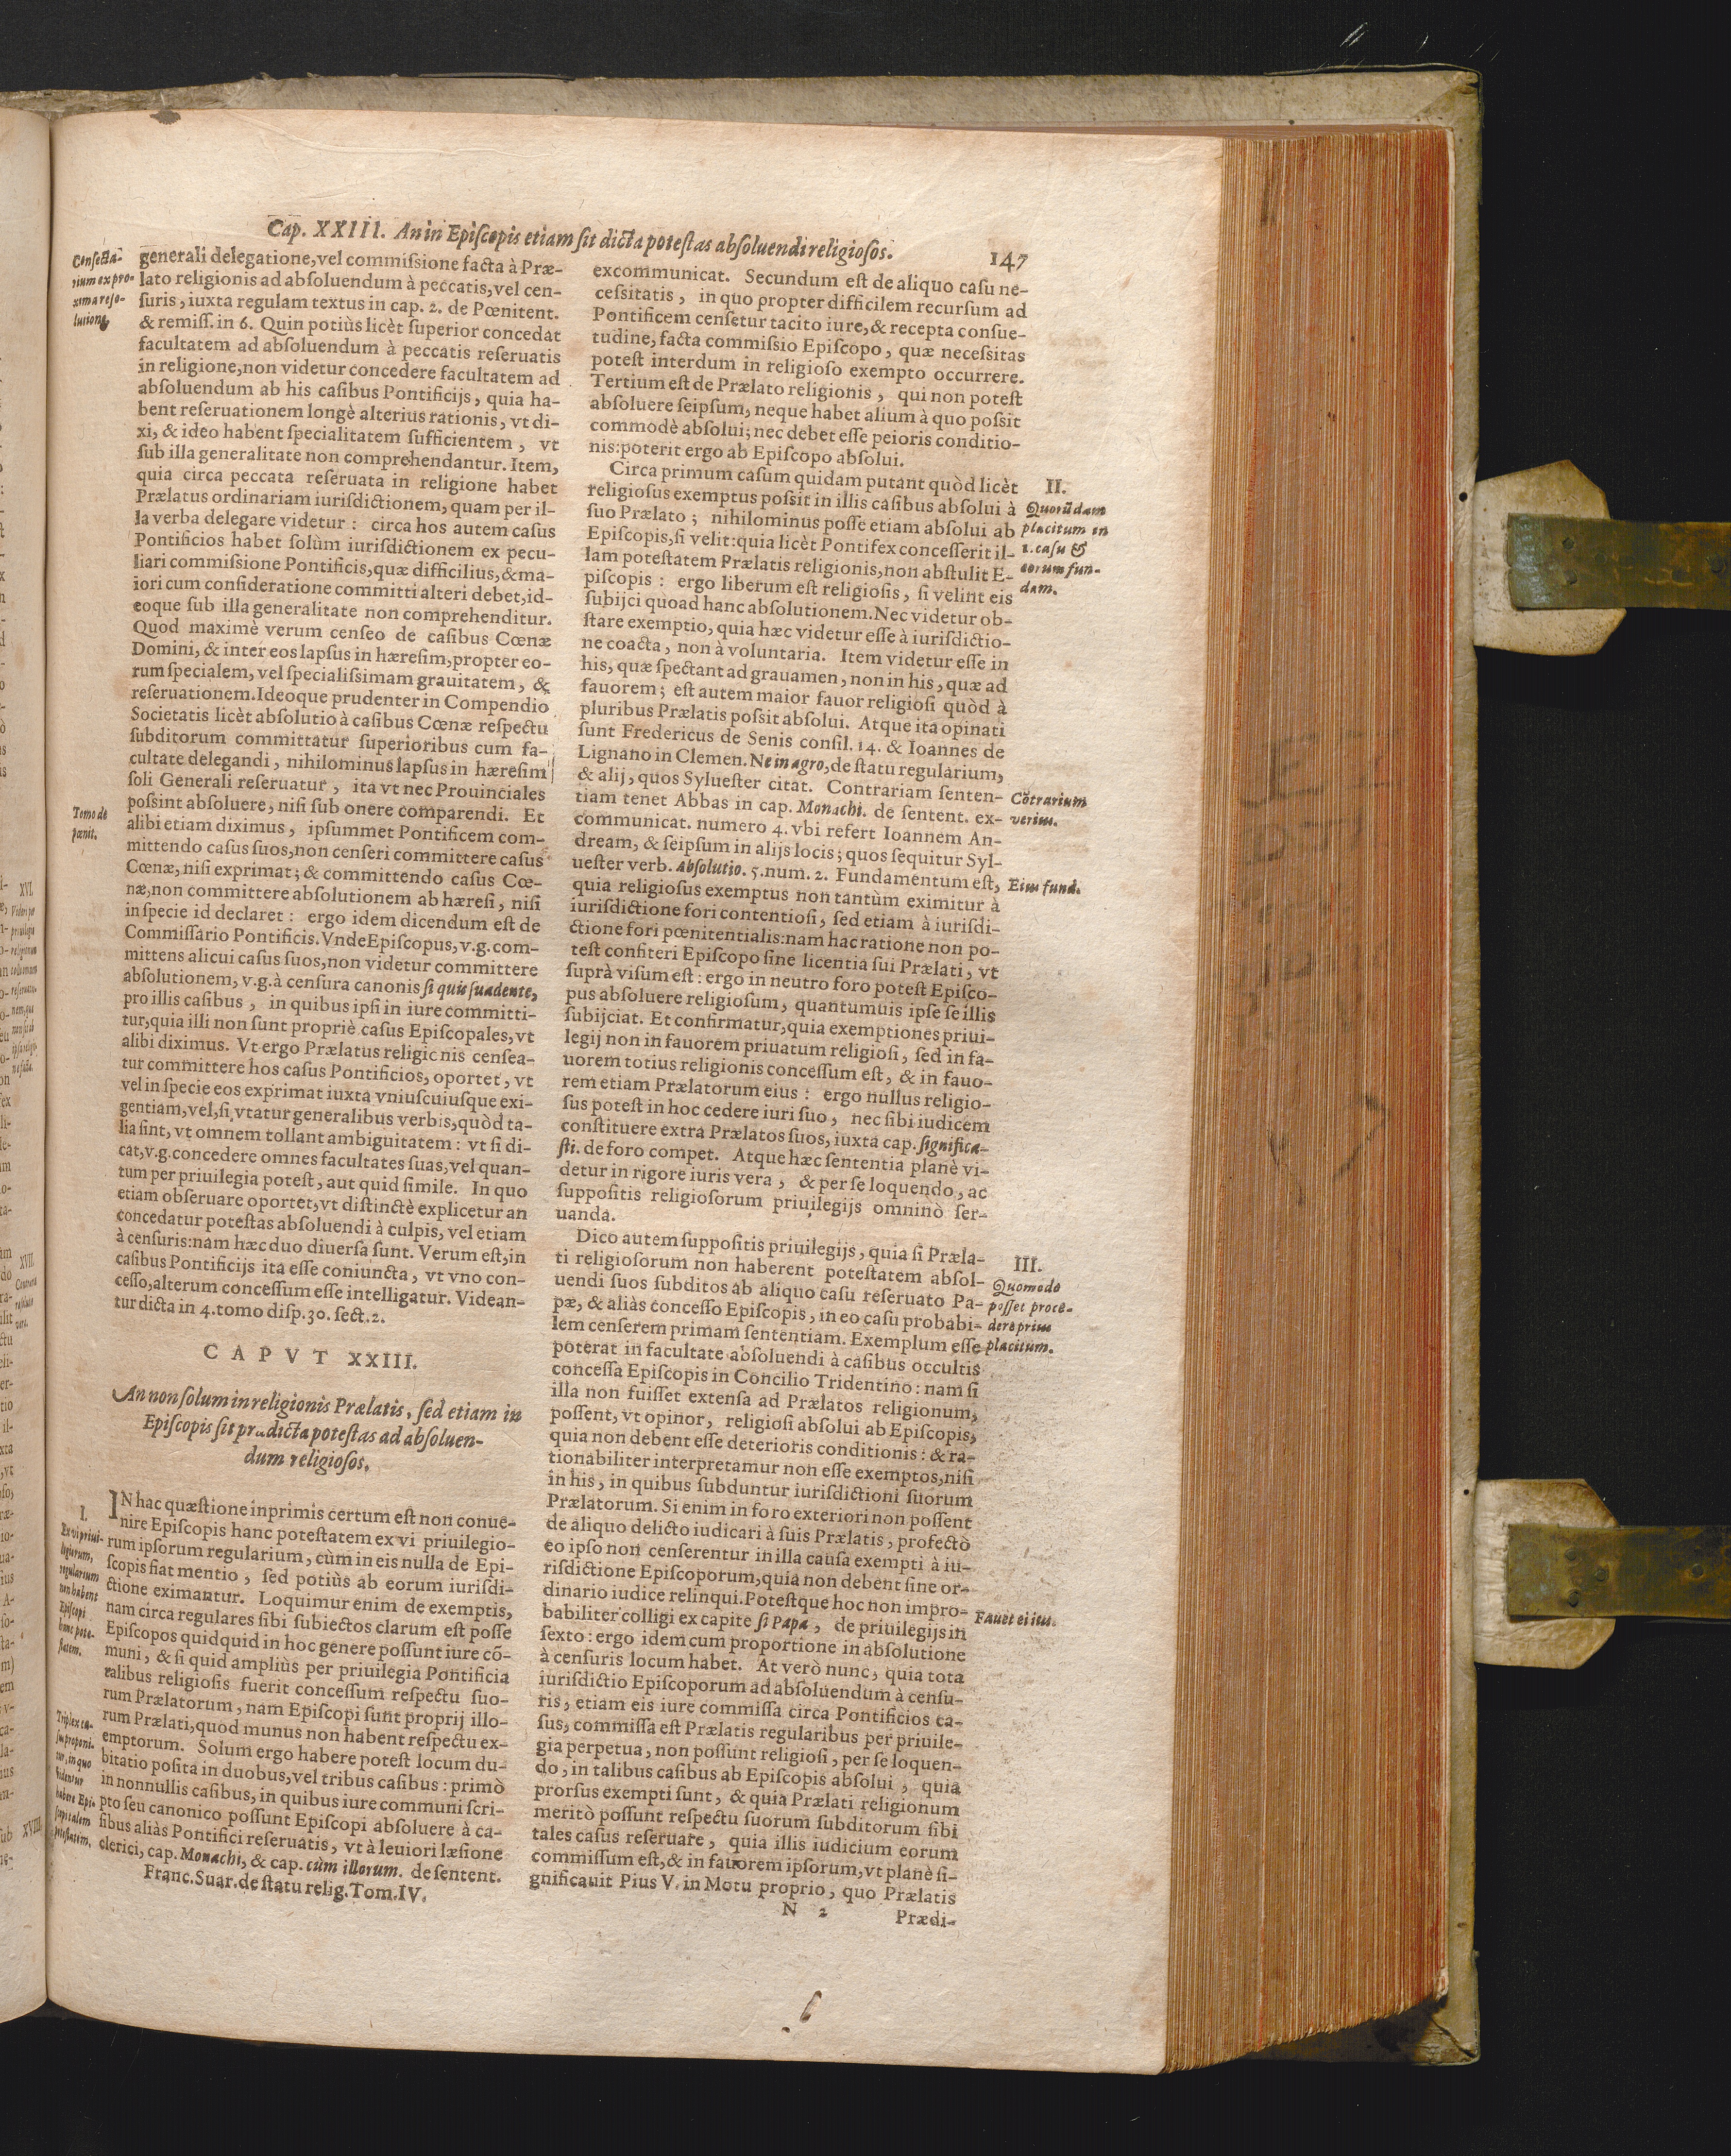 Cap. XXIII. An in Episcopis etiam sit dicta potestas absoluendi religiosos. 147
Consecta-
rium ex pro-
xima reso-
lutione
generali delegatione, vel commissione facta à Præ-
lato religionis ad absoluendum à peccatis, vel cen-
suris, iuxta regulam textus in cap. 2. de Pœnitent.
& remiss. in 6. Quin potiùs licèt superior concedat
facultatem ad absoluendum à peccatis reseruatis
in religione, non videtur concedere facultatem ad
absoluendum ab his casibus Pontificijs, quia ha-
bent reseruationem longè alterius rationis, vt di-
xi, & ideo habent specialitatem sufficientem, vt
sub illa generalitate non comprehendantur. Item,
quia circa peccata reseruata in religione habet
Prælatus ordinariam iurisdictionem, quam per il-
la verba delegare videtur: circa hos autem casus
Pontificios habet solùm iurisdictionem ex pecu-
liari commissione Pontificis, quæ difficilius, & ma-
iori cum consideratione committi alteri debet, id-
eoque sub illa generalitate non comprehenditur.
Quod maximè verum censeo de casibus Cœnæ
Domini, & inter eos lapsus in hæresim, propter eo-
rum specialem, vel specialissimam grauitatem, &
reseruationem. Ideoque prudenter in Compendio
Societatis licèt absolutio à casibus Cœnæ respectu
subditorum committatur superioribus cum fa-
cultate delegandi, nihilominus lapsus in hæresim
soli Generali reseruatur, ita vt nec Prouinciales
possint absoluere, nisi sub onere comparendi. Et
Tomo de
pœnit.
alibi etiam diximus, ipsummet Pontificem com-
mittendo casus suos, non censeri committere casus
Cœnæ, nisi exprimat; & committendo casus Cœ-
næ, non committere absolutionem ab hæresi, nisi
in specie id declaret: ergo idem dicendum est de
Commissario Pontificis. Vnde Episcopus, v.g. com-
mittens alicui casus suos, non videtur committere
absolutionem, v.g. à censura canonis si quis suadente,
pro illis casibus, in quibus ipsi in iure committi-
tur, quia illi non sunt propriè casus Episcopales, vt
alibi diximus. Vt ergo Prælatus religionis censea-
tur committere hos casus Pontificios, oportet, vt
vel in specie eos exprimat iuxta vniuscuiusque exi-
gentiam, vel, si vtatur generalibus verbis, quòd ta-
lia sint, vt omnem tollant ambiguitatem: vt si di-
cat, v.g. concedere omnes facultates suas, vel quan-
tum per priuilegia potest, aut quid simile. In quo
etiam obseruare oportet, vt distinctè explicetur an
concedatur potestas absoluendi à culpis, vel etiam
à censuris: nam hæc duo diuersa sunt. Verum est, in
casibus Pontificijs ita esse coniuncta, vt vno con-
cesso, alterum concessum esse intelligatur. Videan-
tur dicta in 4. tomo disp. 30. sect. 2.
CAPVT XXIII.
An non solum in religionis Prælatis, sed etiam in
Episcopis sit prædicta potestas ad absoluen-
dum religiosos.
I.
Ex vi priui-
legiorum,
regularium
non habent
Episcopi
hanc pote-
statem.
IN hac quæstione inprimis certum est non conue-
nire Episcopis hanc potestatem ex vi priuilegio-
rum ipsorum regularium, cùm in eis nulla de Epi-
scopis fiat mentio, sed potiùs ab eorum iurisdi-
ctione eximantur. Loquimur enim de exemptis,
nam circa regulares sibi subiectos clarum est posse
Episcopos quidquid in hoc genere possunt iure cõ-
muni, & si quid ampliùs per priuilegia Pontificia
talibus religiosis fuerit concessum respectu suo-
rum Prælatorum, nam Episcopi sunt proprij illo-
rum Prælati, quod munus non habent respectu ex-
emptorum. Solum ergo habere potest locum du-
Triplex ca-
sus proponi-
tur, in quo
videntur
habere Epi-
scopi talem
potestatem.
bitatio posita in duobus, vel tribus casibus: primò
in nonnullis casibus, in quibus iure communi scri-
pto seu canonico possunt Episcopi absoluere à ca-
sibus aliàs Pontifici reseruatis, vt à leuiori læsione
clerici, cap. Monachi, & cap. cùm illorum. de sentent.
Franc. Suar. de statu relig. Tom. IV.
excommunicat. Secundum est de aliquo casu ne-
cessitatis, in quo propter difficilem recursum ad
Pontificem censetur tacito iure, & recepta consue-
tudine, facta commissio Episcopo, quæ necessitas
potest interdum in religioso exempto occurrere.
Tertium est de Prælato religionis, qui non potest
absoluere seipsum, neque habet alium à quo possit
commodè absolui; nec debet esse peioris conditio-
nis: poterit ergo ab Episcopo absolui.
II.
Quorũdam
placitum in
1. casu &
eorum fun-
dam.
Circa primum casum quidam putant quòd licèt
religiosus exemptus possit in illis casibus absolui à
suo Prælato; nihilominus posse etiam absolui ab
Episcopis, si velit: quia licèt Pontifex concesserit il-
lam potestatem Prælatis religionis, non abstulit E-
piscopis: ergo liberum est religiosis, si velint eis
subijci quoad hanc absolutionem. Nec videtur ob-
stare exemptio, quia hæc videtur esse à iurisdictio-
ne coacta, non à voluntaria. Item videtur esse in
his, quæ spectant ad grauamen, non in his, quæ ad
fauorem; est autem maior fauor religiosi quòd à
pluribus Prælatis possit absolui. Atque ita opinati
sunt Fredericus de Senis consil. 14. & Ioannes de
Lignano in Clemen. Ne in agro, de statu regularium,
& alij, quos Syluester citat. Contrariam senten-
Cõtrarium
verius.
tiam tenet Abbas in cap. Monachi. de sentent. ex-
communicat. numero 4. vbi refert Ioannem An-
dream, & seipsum in alijs locis; quos sequitur Syl-
uester verb. Absolutio. 5. num. 2. Fundamentum est,
Eius fund.
quia religiosus exemptus non tantùm eximitur à
iurisdictione fori contentiosi, sed etiam à iurisdi-
ctione fori pœnitentialis: nam hac ratione non po-
test confiteri Episcopo sine licentia sui Prælati, vt
suprà visum est: ergo in neutro foro potest Episco-
pus absoluere religiosum, quantumuis ipse se illis
subijciat. Et confirmatur, quia exemptiones priui-
legij non in fauorem priuatum religiosi, sed in fa-
uorem totius religionis concessum est, & in fauo-
rem etiam Prælatorum eius: ergo nullus religio-
sus potest in hoc cedere iuri suo, nec sibi iudicem
constituere extra Prælatos suos, iuxta cap. significa-
sti. de foro compet. Atque hæc sententia planè vi-
detur in rigore iuris vera, & per se loquendo, ac
suppositis religiosorum priuilegijs omninò ser-
uanda.
III.
Quomodo
posset proce-
dere prius
placitum.
Dico autem suppositis priuilegijs, quia si Præla-
ti religiosorum non haberent potestatem absol-
uendi suos subditos ab aliquo casu reseruato Pa-
pæ, & aliàs concesso Episcopis, in eo casu probabi-
lem censerem primam sententiam. Exemplum esse
poterat in facultate absoluendi à casibus occultis
concessa Episcopis in Concilio Tridentino: nam si
illa non fuisset extensa ad Prælatos religionum,
possent, vt opinor, religiosi absolui ab Episcopis,
quia non debent esse deterioris conditionis: & ra-
tionabiliter interpretamur non esse exemptos, nisi
in his, in quibus subduntur iurisdictioni suorum
Prælatorum. Si enim in foro exteriori non possent
de aliquo delicto iudicari à suis Prælatis, profectò
eo ipso non censerentur in illa causa exempti à iu-
risdictione Episcoporum, quia non debent sine or-
dinario iudice relinqui. Potestque hoc non impro-
Fauet ei ius.
babiliter colligi ex capite si Papa, de priuilegijs in
sexto: ergo idem cum proportione in absolutione
à censuris locum habet. At verò nunc, quia tota
iurisdictio Episcoporum ad absoluendum à censu-
ris, etiam eis iure commissa circa Pontificios ca-
sus, commissa est Prælatis regularibus per priuile-
gia perpetua, non possunt religiosi, per se loquen-
do, in talibus casibus ab Episcopis absolui, quia
prorsus exempti sunt, & quia Prælati religionum
meritò possunt respectu suorum subditorum sibi
tales casus reseruare, quia illis iudicium eorum
commissum est, & in fauorem ipsorum, vt planè si-
gnificauit Pius V. in Motu proprio, quo Prælatis
N 2 Prædi-